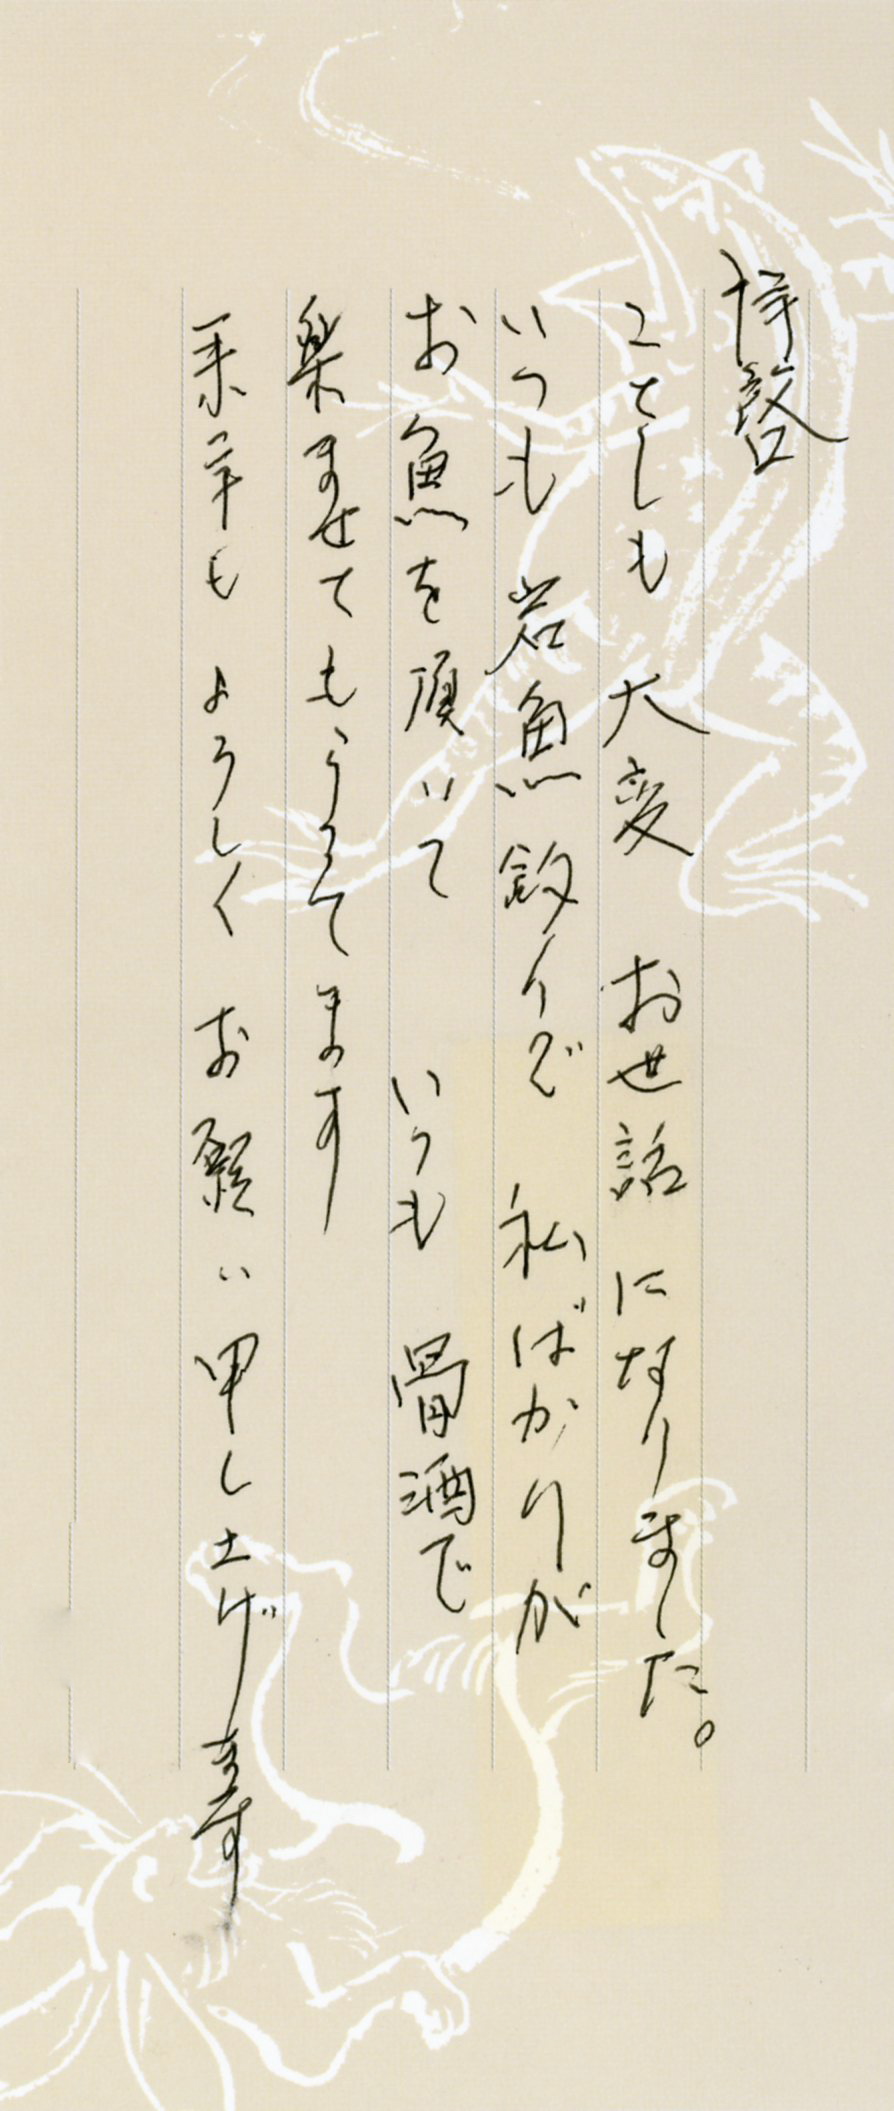 拝啓
ことしも 大変 お世話 になりました。
いつも 岩魚 釣りで 私ばかりが
お魚を頂いて いつも 骨酒で
楽ませてもらってます
来年も よろしく お願い申し上げます